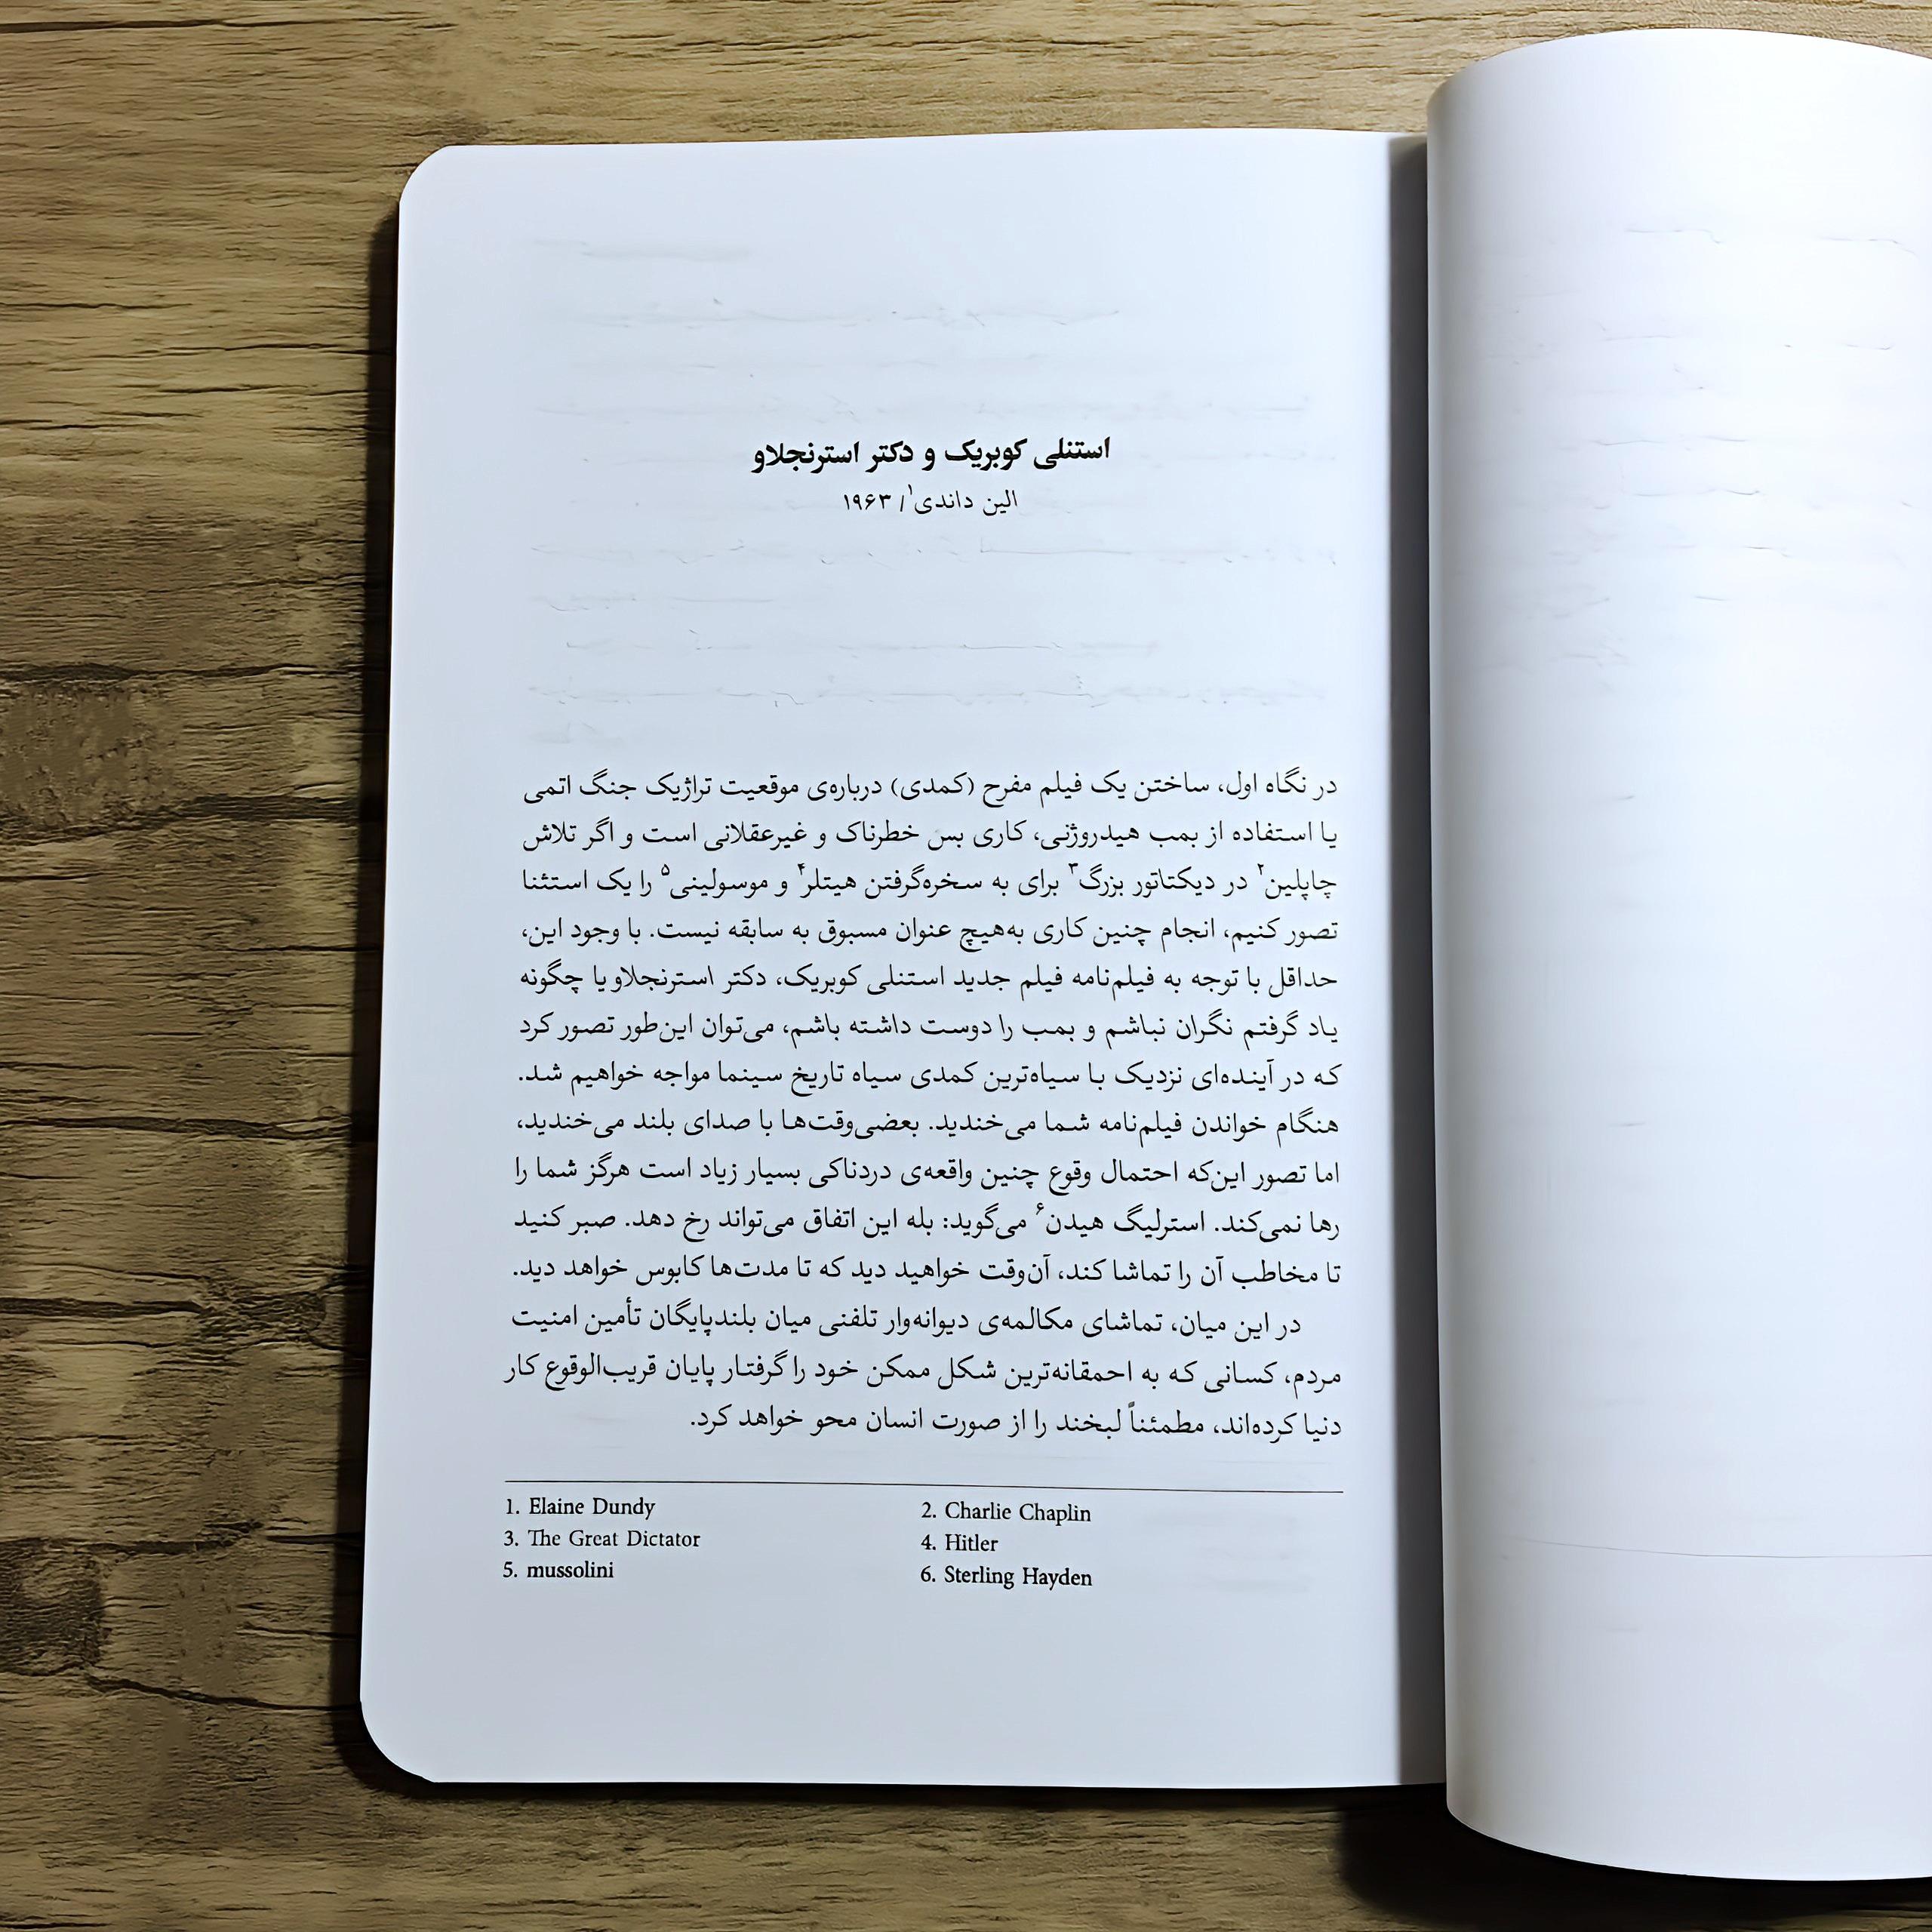 استنلی کوبریک و دکتر استرنجلاو
الین داندی۱/ ۱۹۶۳
در نگاه اول، ساختن یک فیلم مفرح (کمدی) درباره‌ی موقعیت تراژیک جنگ اتمی
یا استفاده از بمب هیدروژنی، کاری بس خطرناک و غیرعقلانی است و اگر تلاش
چاپلین۲ در دیکتاتور بزرگ۳ برای به سخره‌گرفتن هیتلر۴ و موسولینی۵ را یک استثنا
تصور کنیم، انجام چنین کاری به‌هیچ عنوان مسبوق به سابقه نیست. با وجود این،
حداقل با توجه به فیلم‌نامه فیلم جدید استنلی کوبریک، دکتر استرنجلاو یا چگونه
یاد گرفتم نگران نباشم و بمب را دوست داشته باشم، می‌توان این‌طور تصور کرد
که در آینده‌ای نزدیک با سیاه‌ترین کمدی سیاه تاریخ سینما مواجه خواهیم شد.
هنگام خواندن فیلم‌نامه شما می‌خندید. بعضی‌وقت‌ها با صدای بلند می‌خندید،
اما تصور این‌که احتمال وقوع چنین واقعه‌ی دردناکی بسیار زیاد است هرگز شما را
رها نمی‌کند. استرلیگ هیدن۶ می‌گوید: بله این اتفاق می‌تواند رخ دهد. صبر کنید
تا مخاطب آن را تماشا کند، آن‌وقت خواهید دید که تا مدت‌ها کابوس خواهد دید.
در این میان، تماشای مکالمه‌ی دیوانه‌وار تلفنی میان بلندپایگان تأمین امنیت
مردم، کسانی که به احمقانه‌ترین شکل ممکن خود را گرفتار پایان قریب‌الوقوع کار
دنیا کرده‌اند، مطمئناً لبخند را از صورت انسان محو خواهد کرد.
1. Elaine Dundy
2. Charlie Chaplin
3. The Great Dictator
4. Hitler
5. mussolini
6. Sterling Hayden